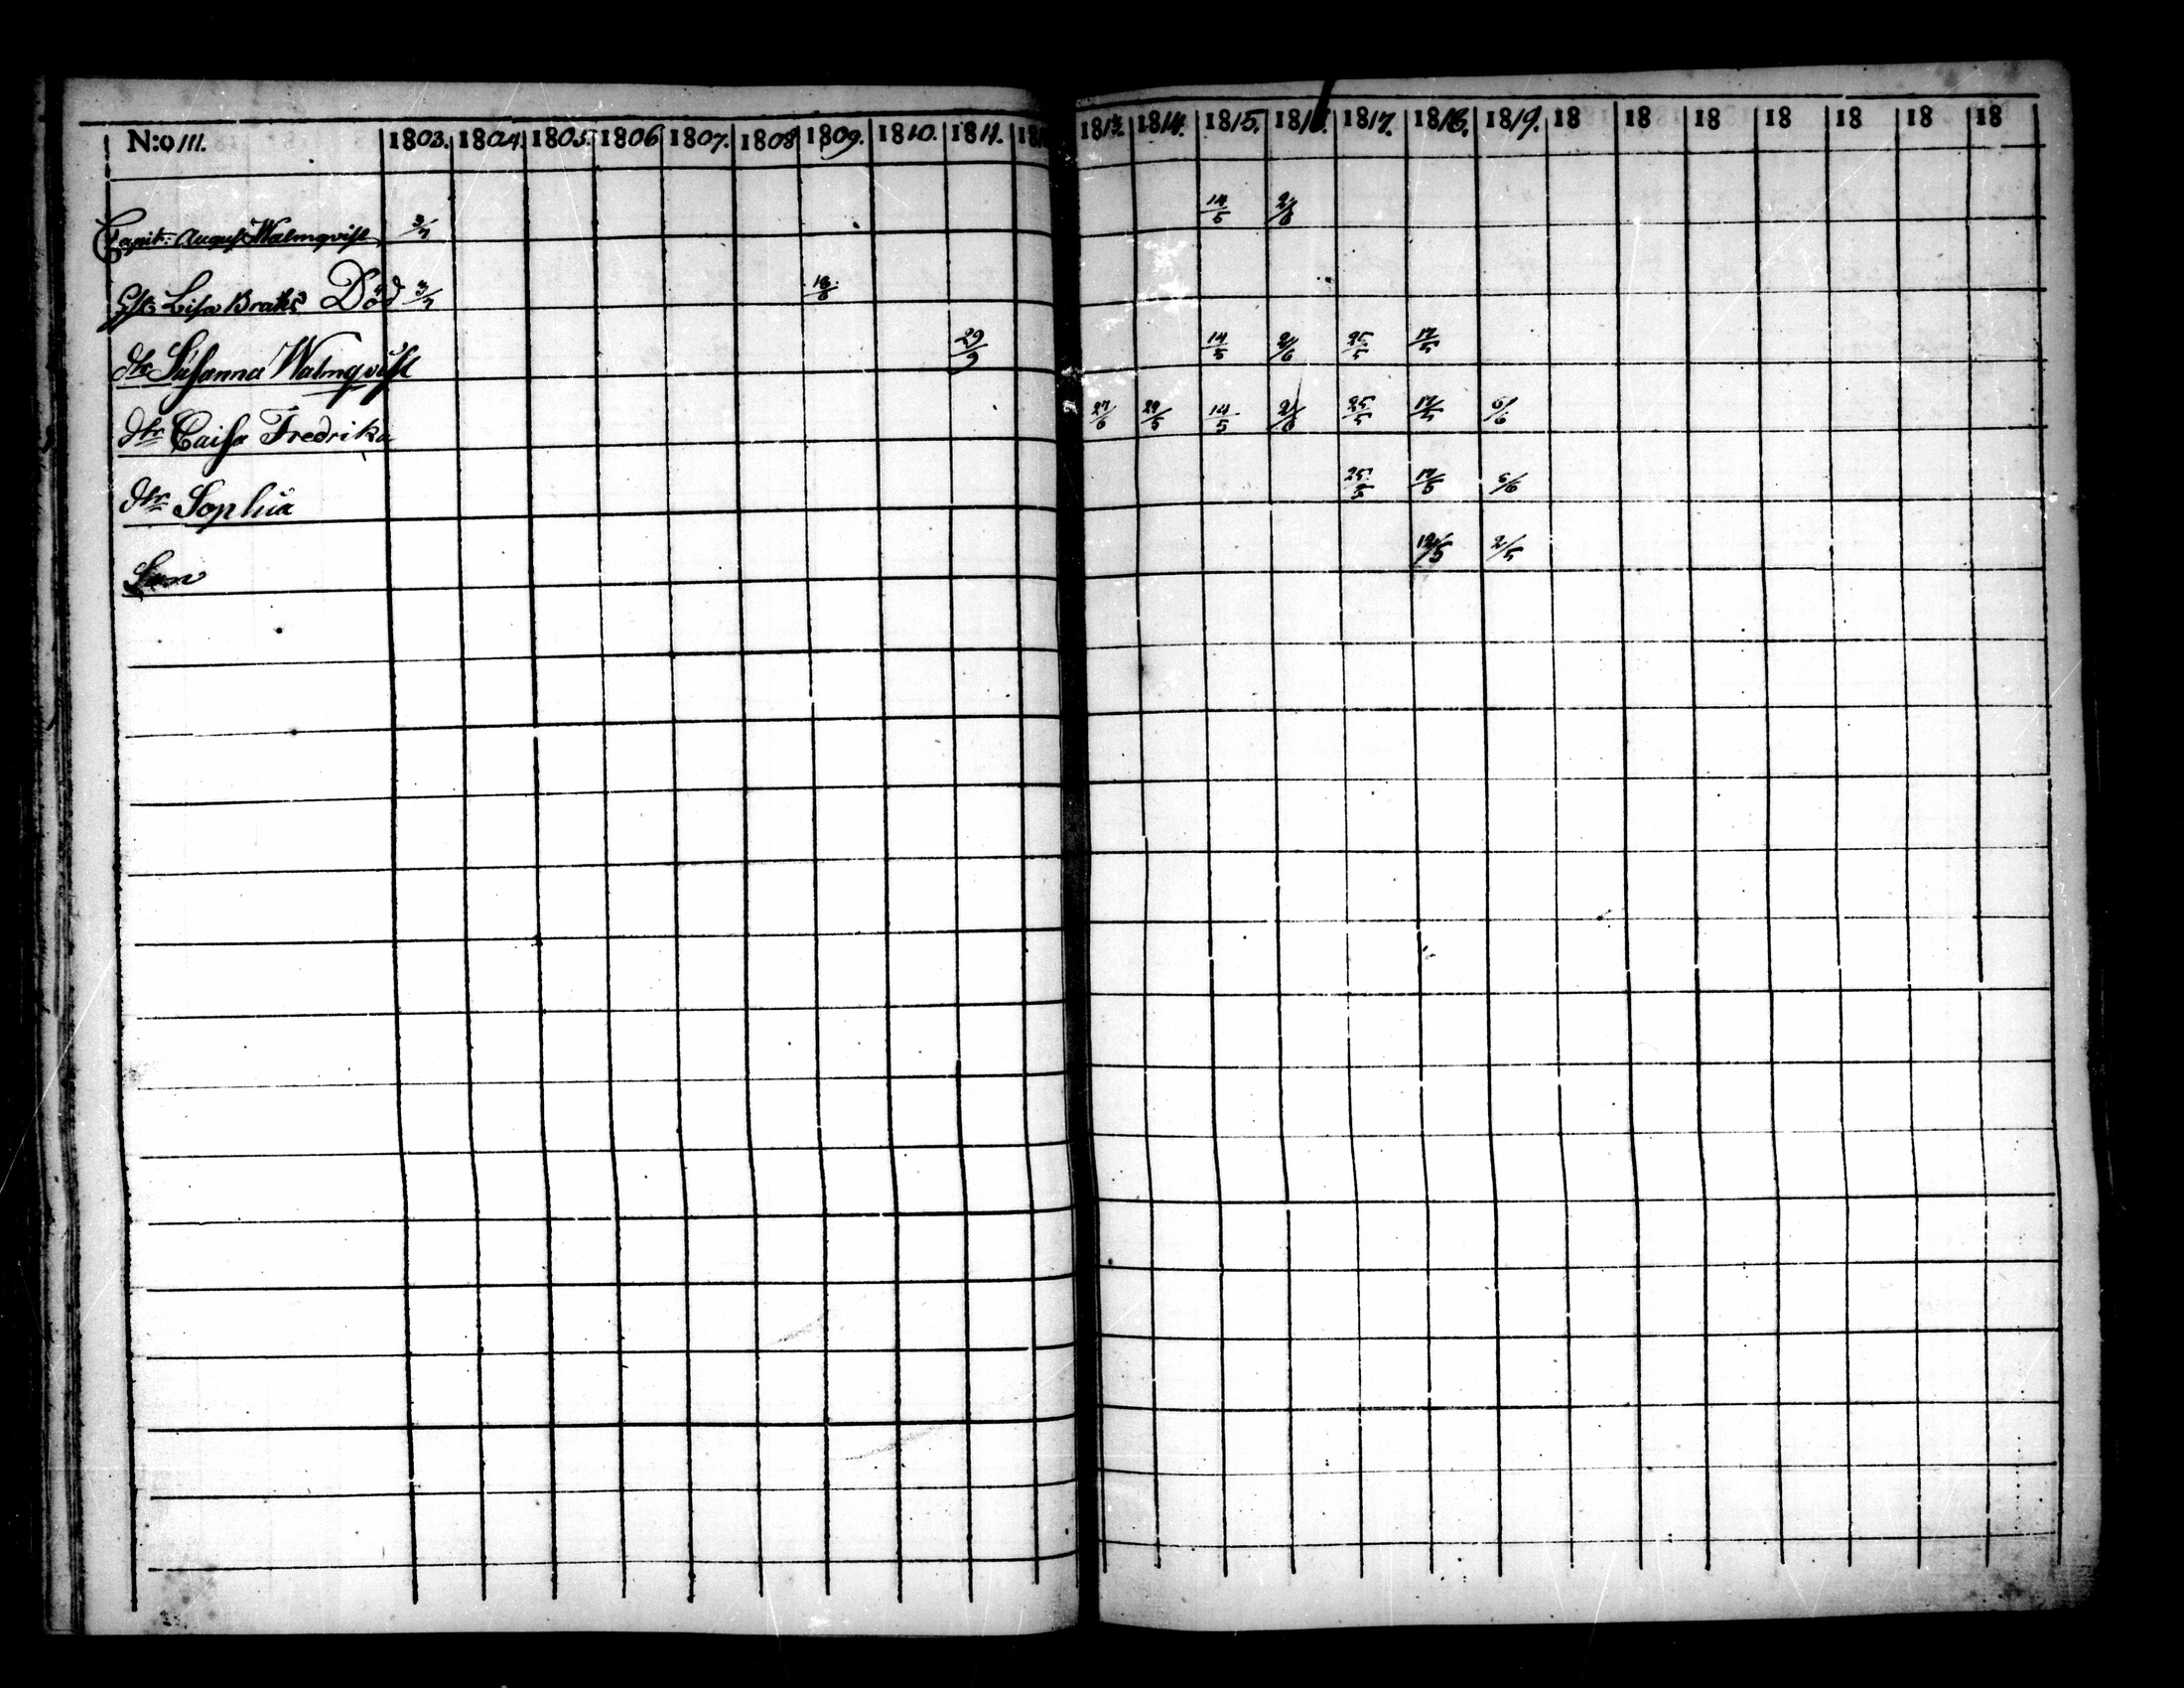 N:o 111. 1803. 1804. 1805. 1806 1807. 1808 1809. 1810. 1811. 181 1813. 1814. 1815. 1816. 1817. 1818. 1819. 18 18 18 18 18 18 18
Capit: August Walmqvist 3/7 14/5 2/6
Lisa Brakē Död 3/7 18/6
dtr Susanna Walmqvist 29/9 14/5 2/6 25/5 17/5
dtr Caisa Fredrika 27/6 29/5 14/5 2/6 25/5 17/5 6/6
dtr Sophia 25/5 17/5 6/6
12/5 2/5